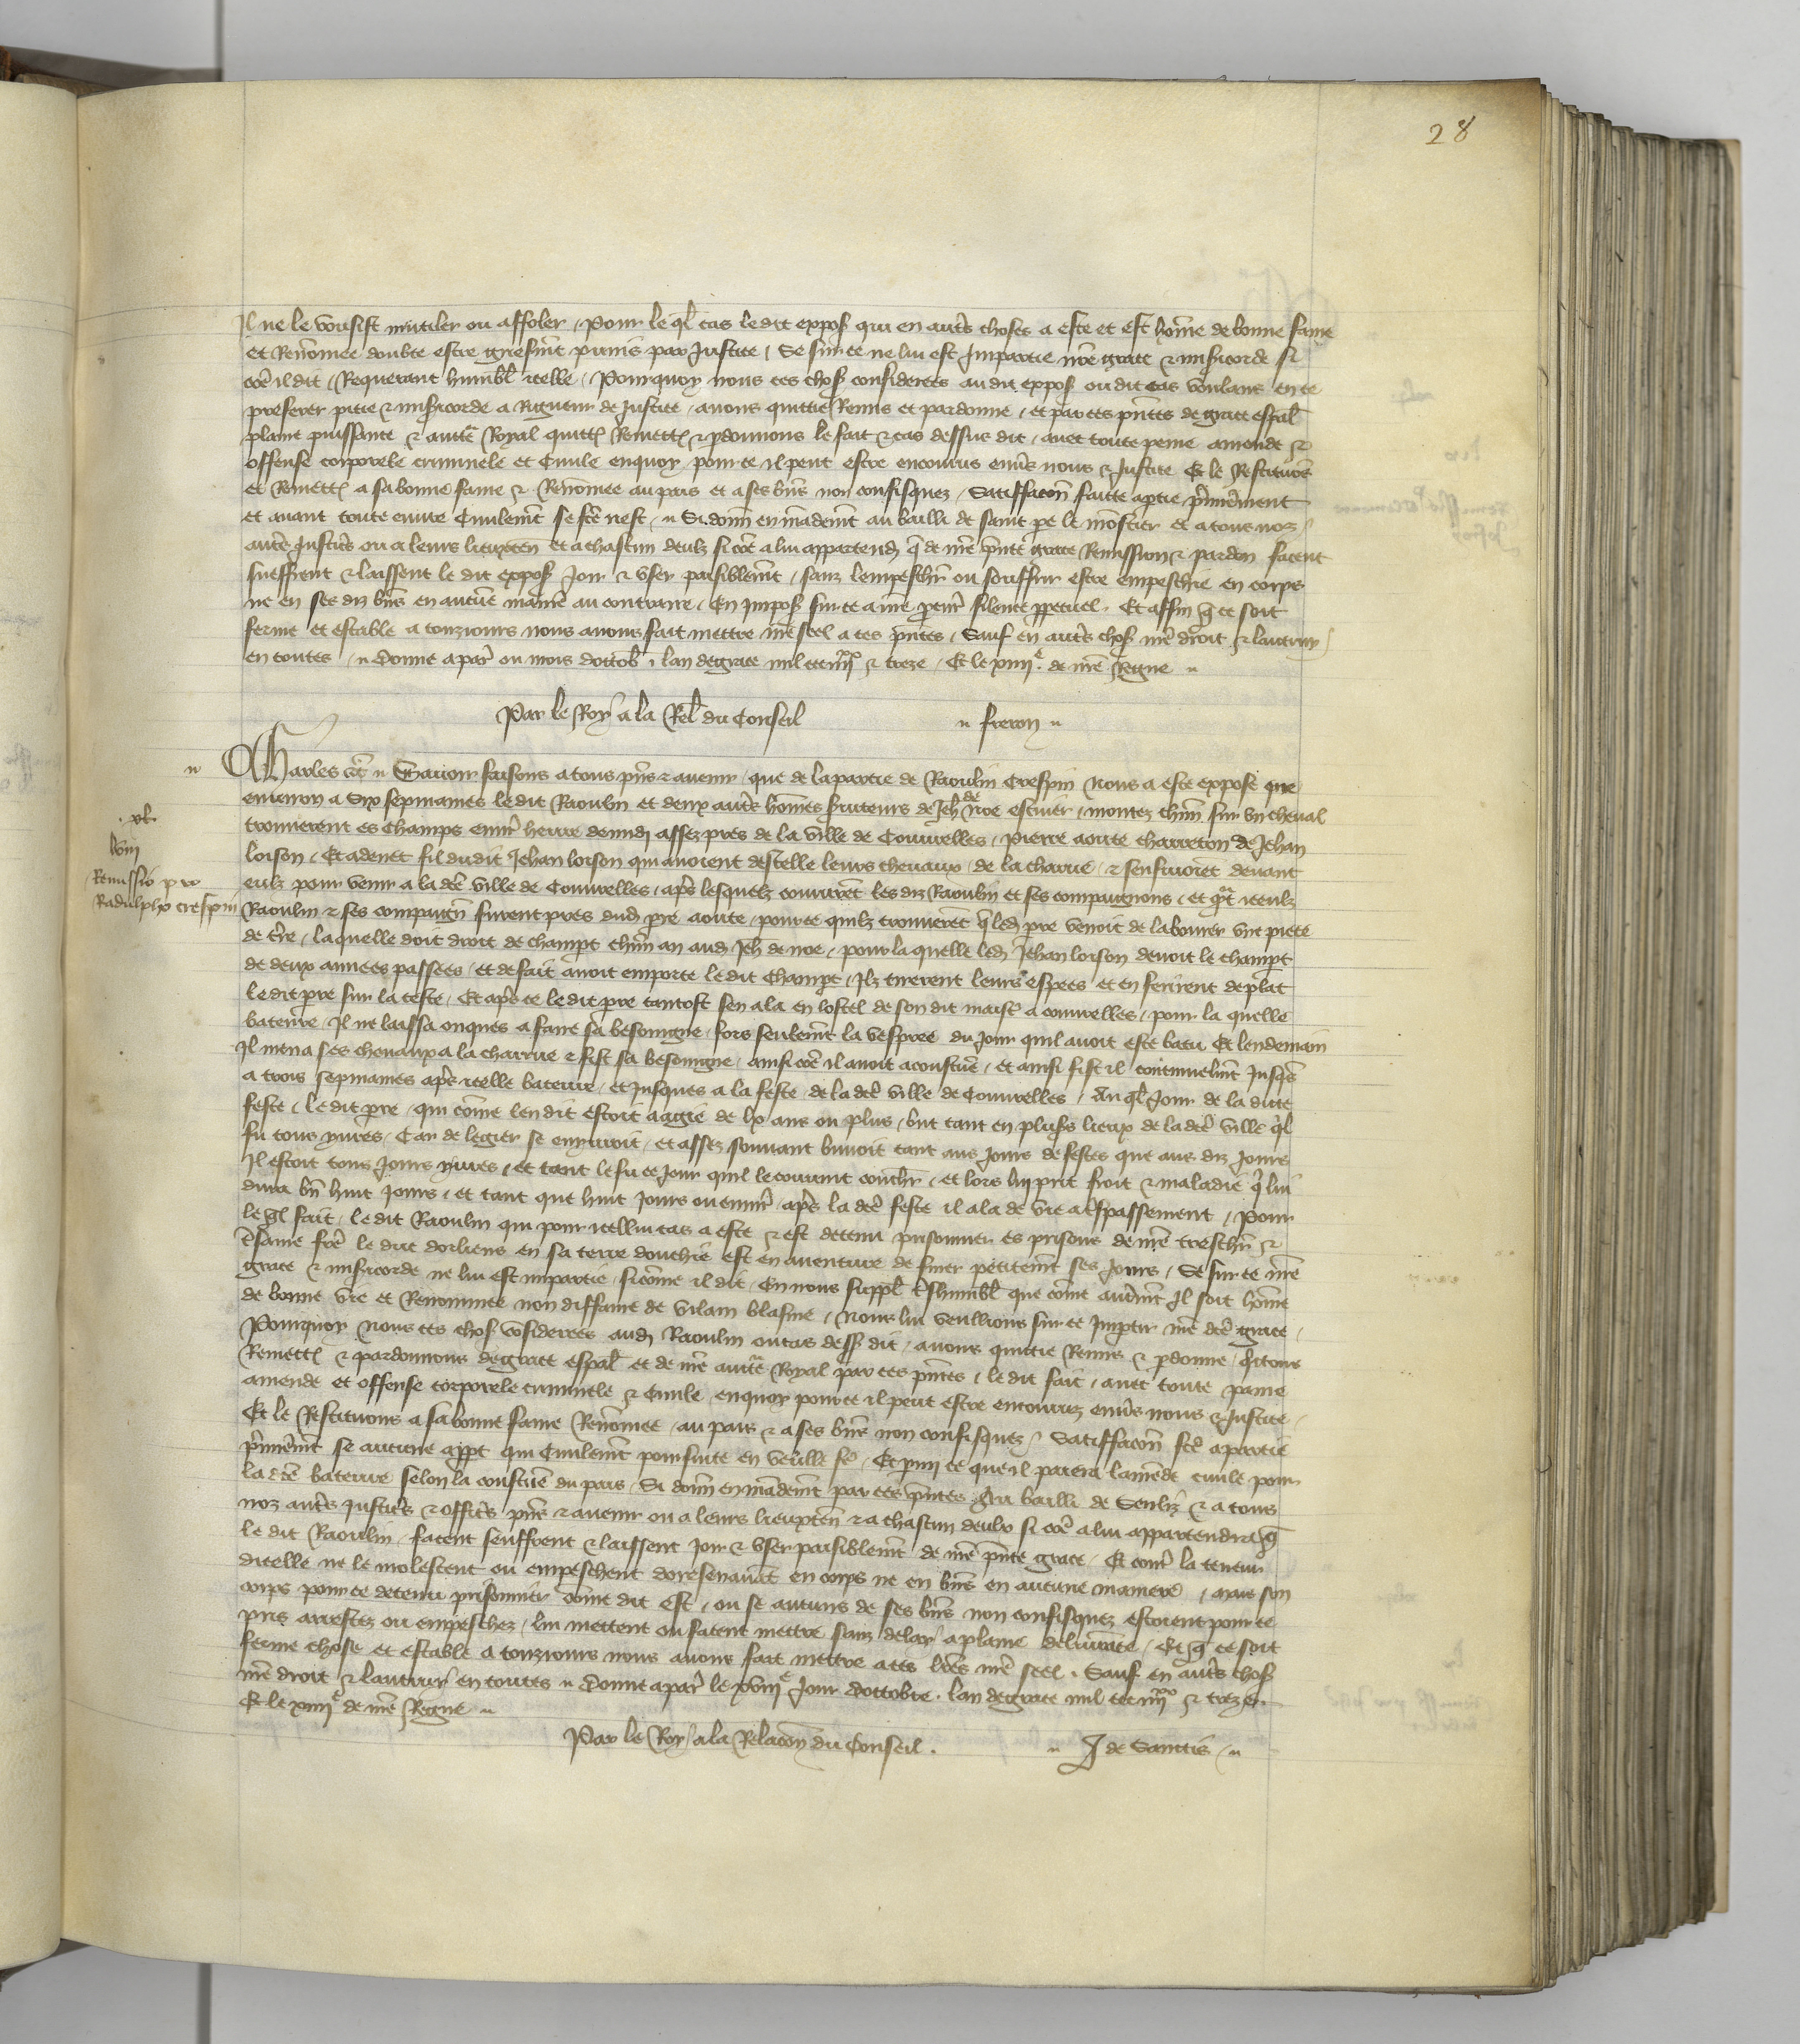 28
Il ne le voursist mutiler ou affoler / Pour le ql cas ledit expos qui en autres choses a este et est home de bonne fame
et Renomee doubte estre griefmt punis par Justice / Se sur ce ne lui est Impartie nre grace & misericorde si
coe il dit / Requerant humbl icelle / Pourquoy nous ces chos considerees audit expos ou dit cas voulans en ce
preferer pitie & misericorde a Rigueur de Justice / avons quittie Remis et pardonne / et par ces pntes de grace espal
plaine puissance & aucte Royal quitt Remett & pdonnons le fait & cas dessus dit / avec toute peine amende &
offense corporele criminele et Civile enquoy pour ce il peut estre encourus envs nous & Justice Et le Restituos
et Remett a sa bonne fame & Renomee au pais et a ses bns non confisquez / Satiffacon faitte a ptie pmierement
et avant toute euvre Civilemt se fte nest / Si donn en mandemt au bailli de saint pe le mostier et a tous noz
autres Justiciers ou a leurs lieuxten et a chascun deulz si coe a lui appartend q de nre pnte grace Remission & pardon facent
sueffrent & laissent le dit expos Joir & user paisiblemt / sanz lempeschr ou souffrir estre empeschie en corps
ne en ses diz bns en aucune maniere au contraire / En Impos sur ce a nre pcur silence ppetuel / Et affin q ce soit
ferme et estable a touziours nous avons fait mettre nre seel a ces pntes / Sauf en autres chos nre droit & lautruy
en toutes / Donne a par ou mois doctob / lan de grace mil ccc iiiixx & treze / Et le xiiiie de nre Regne
Par le Roy a la Rel du Conseil freron
Charles etc Savoir faisons a tous pns & avenir / que de la partie de Raoulin Crespin Nous a este expose que
environ a Six sepmaines ledit Raoulin et deux autres homes fruteurs de Jeh de noe escuier / montez chun sur un cheval
trouverent es Champs envir heure de midi assez pres de la ville de Couvrelles / Pierre aoute charreton de Jehan
loison / Et adenet fil dudit Jehan loison qui avoient destelle leurs chevaux de la charrue / & senfuioient devant
eulz pour venir a la dce ville de Couvrelles / aps lesquelz coururent les diz Raoulin et ses compaignons / et qt iceulz
Raoulin & ses compaign furent pres dud pre aoute / pour ce quilz trouverent q led pre venoit de labourer une piece
de tre / laquelle doit droit de champt chun an aud Jeh de noe / pour laquelle led Jehan loison devoit le champt
de deux annees passees / et de fait avoit emporte le dit Champt / Ilz tirerent leurs espees et en ferirent de plat
le dit pre sur la teste / Et aps ce le dit pre tantost sen ala en lostel de son dit maist a couvrelles / pour la quelle
bateure / Il ne laissa onques a faire sa besoingne / fors seulemt la vespree du Jour quil avoit este batu Et lendemain
Il mena ses chevaux a la charrue & fist sa besoingne / ainsi coe il avoit acoustume / et ainsi fist il continuelmt Jusqes
a trois sepmaines aps icelle bateure / et Jusques a la feste de la dce ville de Couvrelles / Au ql Jour de la dicte
feste / le dit pre / qui come len dit estoit aagie de lx ans ou plus / but tant en plus lieux de la dce ville ql
fu tous yvres / Car de legier se enyvroit / et assez souvant buvoit tant aus Jours de festes que aus diz Jours
Il estoit tous Jours yvres / et tant le fu ce Jour quil le couvint couchr / et lors luy prit froit & maladie q lui
dura bn huit Jours / et tant que huit Jours ou envir aps la dce feste il ala de vie a trespassement / Pour
le ql fait / le dit Raoulin qui pour icellui cas a este & est detenu prisonnier es prisons de nre treschr &
tresame frere le duc dorliens en sa terre douchie est en aventure de finer petitemt ses Jours / Se sur ce nre
grace & misericorde ne lui est impartie / si come il dit / En nous suppl treshumbl que come autrmt Il soit home
de bonne vie et Renommee non diffame de vilain blasme / Nous lui veullions sur ce Impartir nre dce grace /
Pourquoy nous ces chos considerees aud Raoulin ou cas dess dit / avons quictie Remis & pdonne / qictons
Remett & pardonnons de grace espal et de nre aucte Royal par ces pntes / le dit fait / avec toute paine
amende et offense corporele criminele & Civile enquoy pour ce il peut estre encouruz envs nous & Justice /
Et le Restituons a sa bonne fame Renomee / au pais & a ses bns non confisquez / Satiffacon fte a partie
pmieremt se aucune appt qui Civilemt poursuite en veulle fe / Et pmi ce que il paiera lamende civile pour
la dce bateure selon la coustume du pais / Si donn en mandemt par ces pntes Au bailli de Senliz & a tous
noz autres Justiciers & officiers pns & avenir ou a leurs lieuxten & a chascun deulx si coe a lui appartendra / q
le dit Raoulin / facent seuffrent & laissent Joir & user paisiblemt de nre pnte grace / Et contr la teneur
dicelle ne le molestent ou empeschent doresenavat en corps ne en bns en aucune maniere / mais son
corps pour ce detenu prisonnier come dit est / ou se aucuns de ses bns non confisquez estoient pour ce
pris arrestez ou empeschez / lui mettent ou facent mettre sanz delay a plaine delivrance / Et q ce soit
ferme chose et estable a touziours nous avons fait mettre a ces lres nre seel / Sauf en autres chos
nre droit & lautruy en toutes Donne a par le xviiie Jour doctobre / lan de grace mil ccc iiiixx & treze
Et le xiiiie de nre Regne
Par le Roy a la Relacon du Conseil . J de Sanctis
xl
lviij
Remissio pro
Radulpho crespin